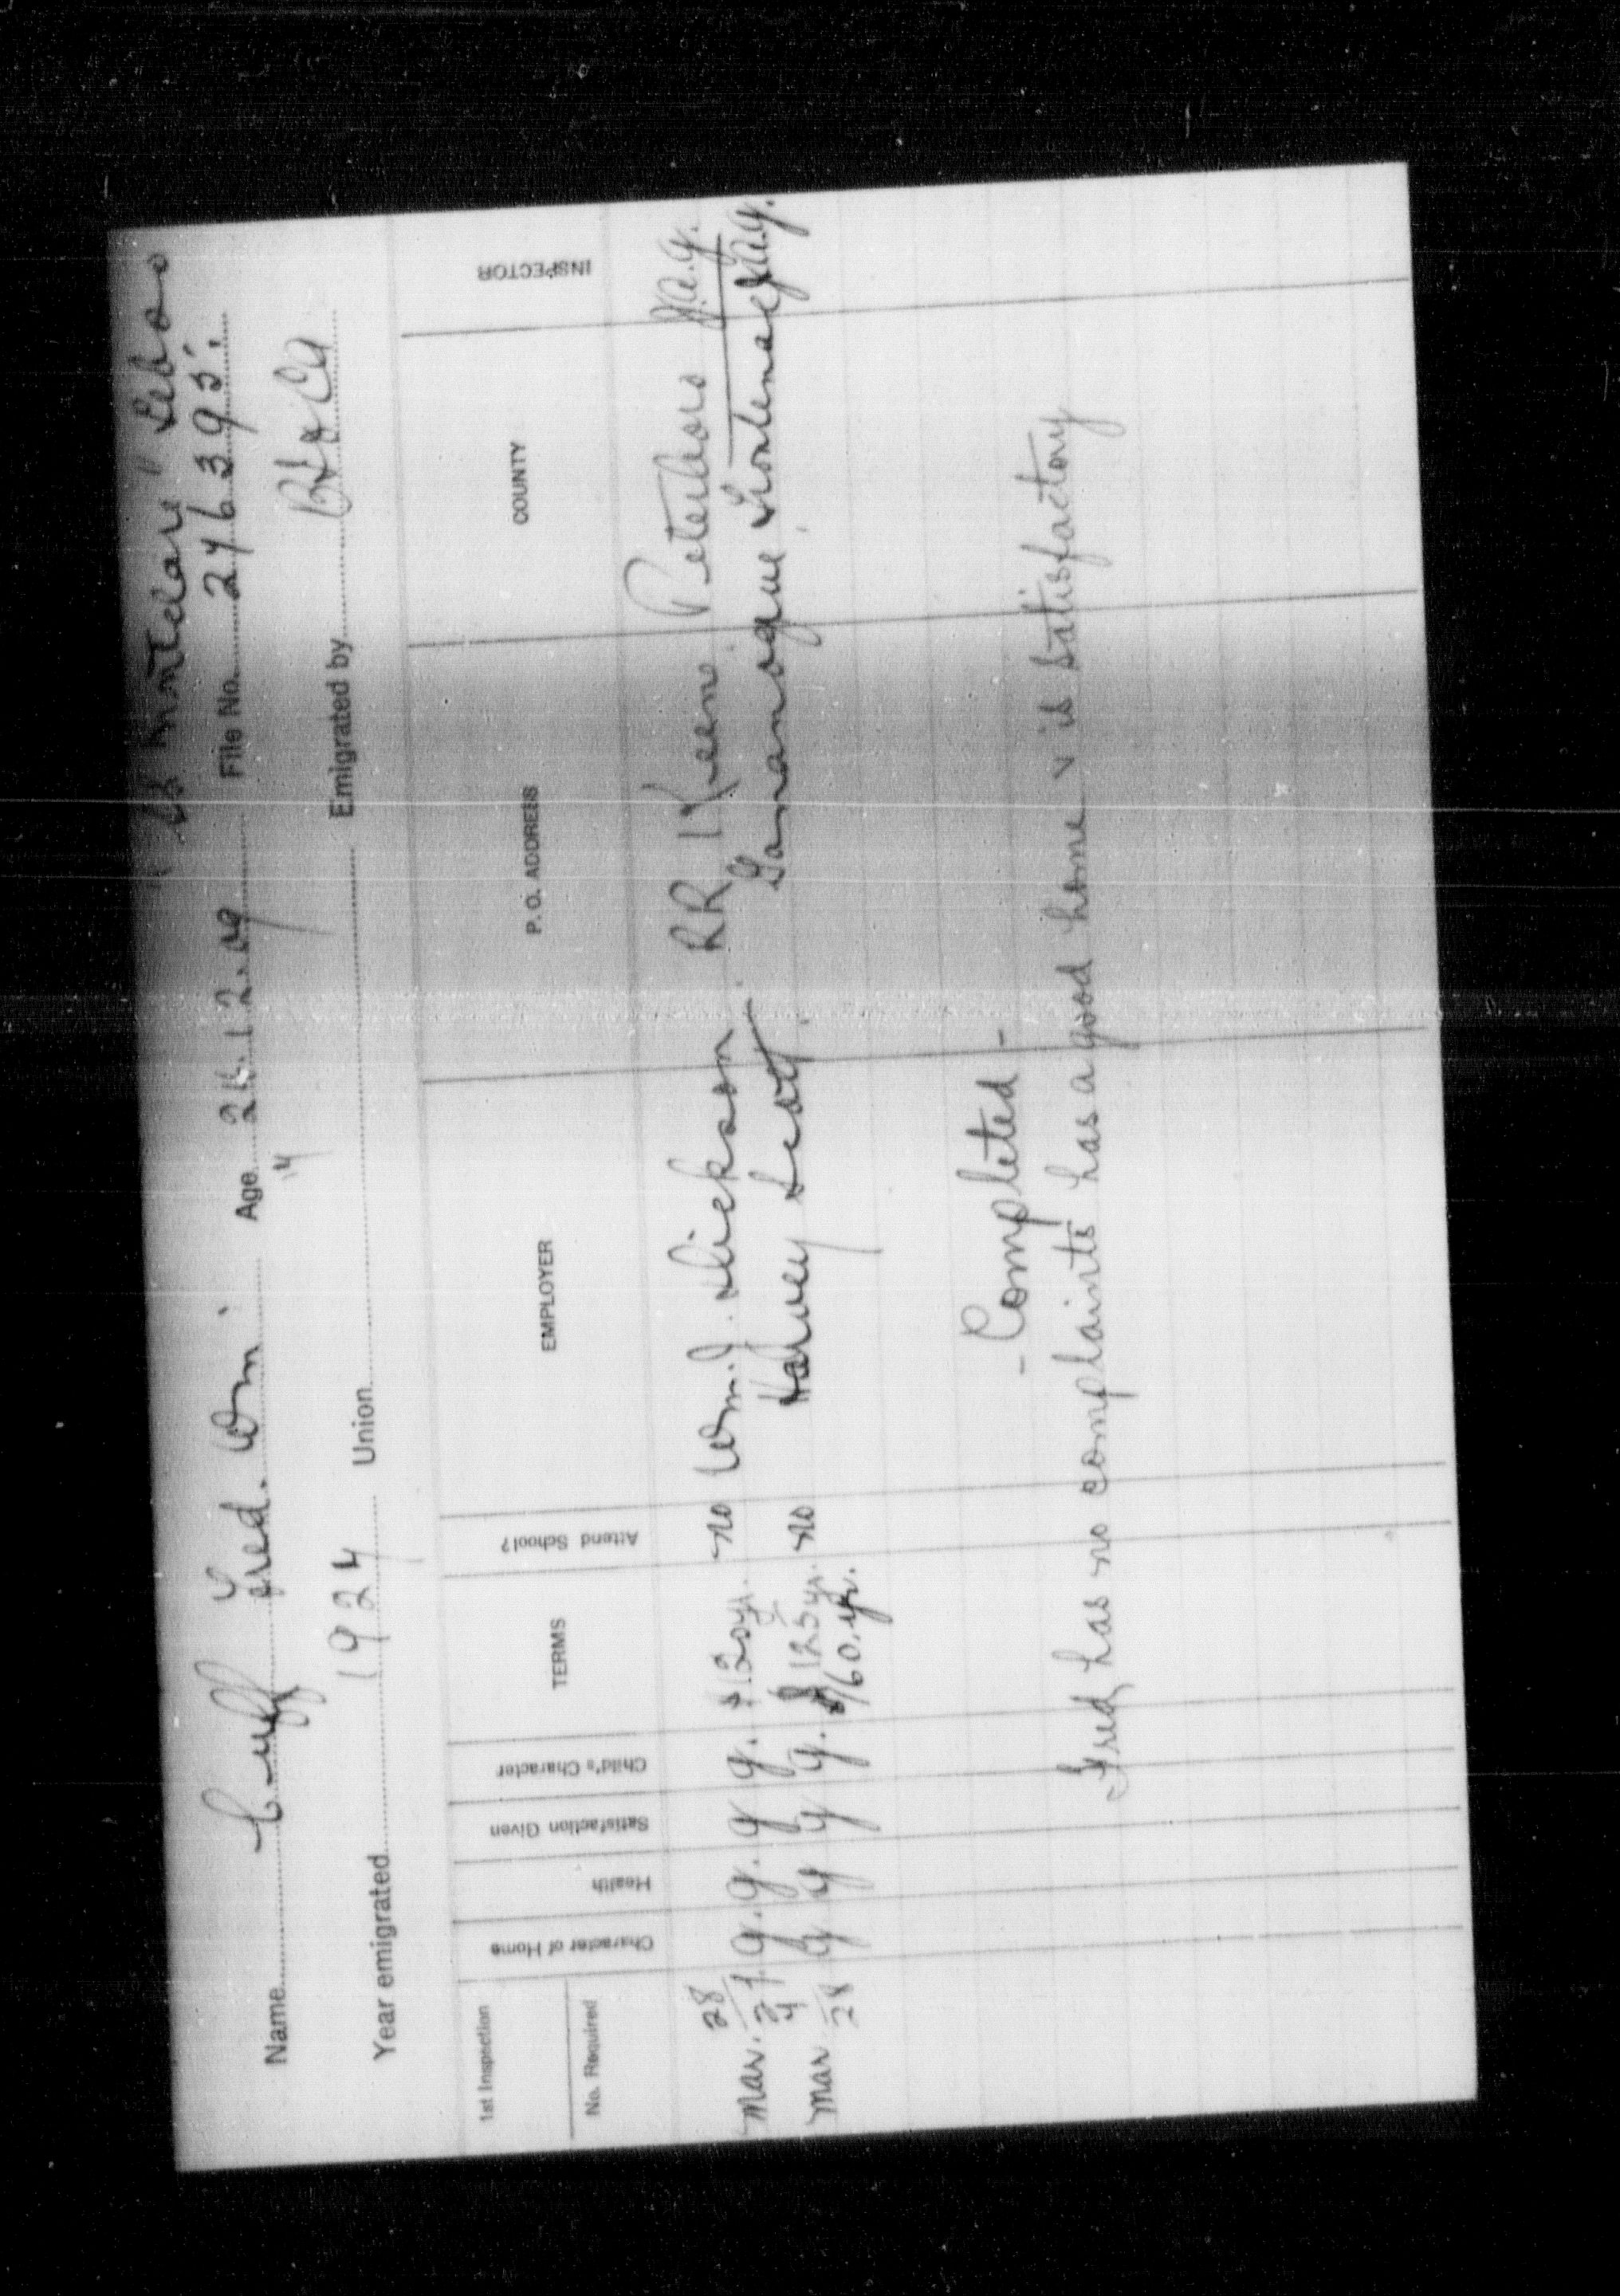 SS Montclare Sebos
Name Cuff Fred. Wm. Age 24.12.09 File No. 276395.
14
Year emigrated 1924 Union Emigrated by
1st Inspection
No. Required
Character of Home
Health
Satisfaction Given
Child's Character
TERMS
Attend School?
EMPLOYER
P. O. ADDRESS
COUNTY
INSPECTOR
Mar. 28/27. g. g. g g. $120 yr. no Wm. J. Dickson. RR 1 Keene. Peterboro
Mar 4/28 g g g g. $125 yr. no Harvey Scott. Gananoque Frontenac
$160. yr.
- Completed -
Fred has no complaints has a good home & is satisfactory